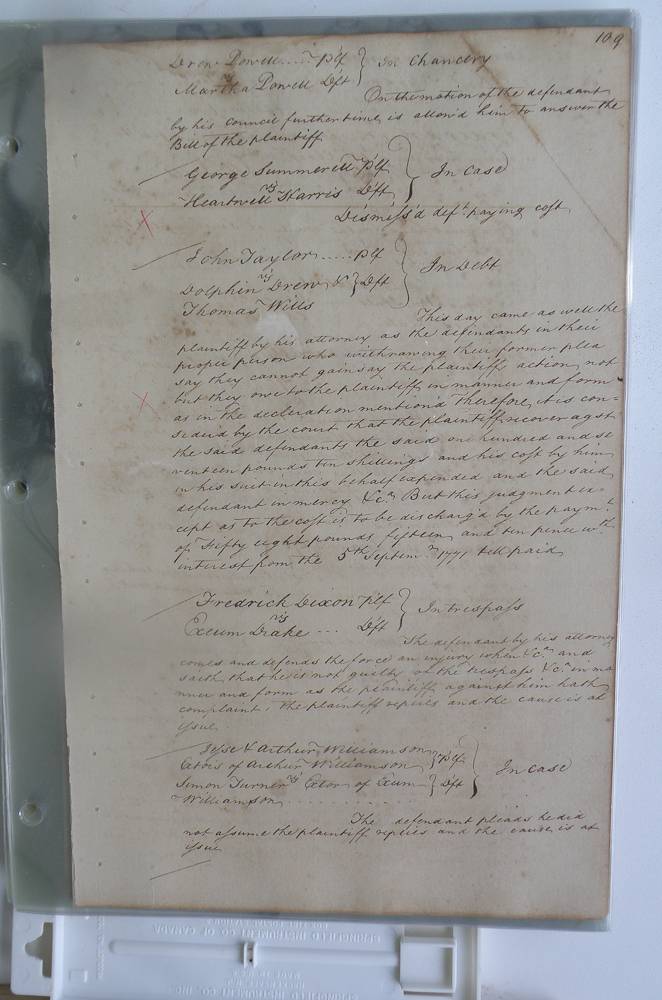 109
Drew Powell..... Plf } In Chancery
vs
Martha Powell Dft
On the motion of the defendant
by his council further time is allow'd him to answer the
Bill of the plaintiff
George Summerell Plf } In Case
vs
Heartwell Harris Dft
Dismiss'd deft paying cost
John Taylor ..... Plf } In Debt
vs
Dolphin Drew & } Dft
Thomas Wills
This day came as well the
plaintiff by his attorney as the defendants in their
proper person who withrawing their former plea
say they cannot gainsay the plaintiffs action, not
but they owe to the plaintiff in manner and form
as in the decleration mention'd Therefore it is con=
sederd by the court that the plaintiff recover agst
the said defendants the said one hundred and se
venteen pounds ten shillings and his cost by him
in his suit in this behalf expended and the said
defendant in mercy &c.a But this judgment ex-
cept as to the cost is to be discharg'd by the paymt
of Fifty eight pounds fifteen and ten pence wth
interest from the 5th Septemr 1771 till paid
Fredrick Dixon Plf } In trespass
vs
Exum Drake ... Dft
The defendant by his attorney
comes and defends the force an injury when &c.a and
saith that he is not guilty of the trespass &c.a in ma
nner and form as the plaintiff against him hath
complaint, the plaintiff replies and the cause is at
issue
Jesse & Arthur Williamson
Extors of Arthur Williamson } Plf } In Case
vs
Simon Turner Extor of Exum } Dft
Williamson
The defendant pleads he did
not assume the plaintiff replies and the cause is at
issue
SPRINGFIELD INSTRUMENT CO OF CANADA
SPRINGFIELD INSTRUMENT CO. INC.
MADE IN U.S.A.